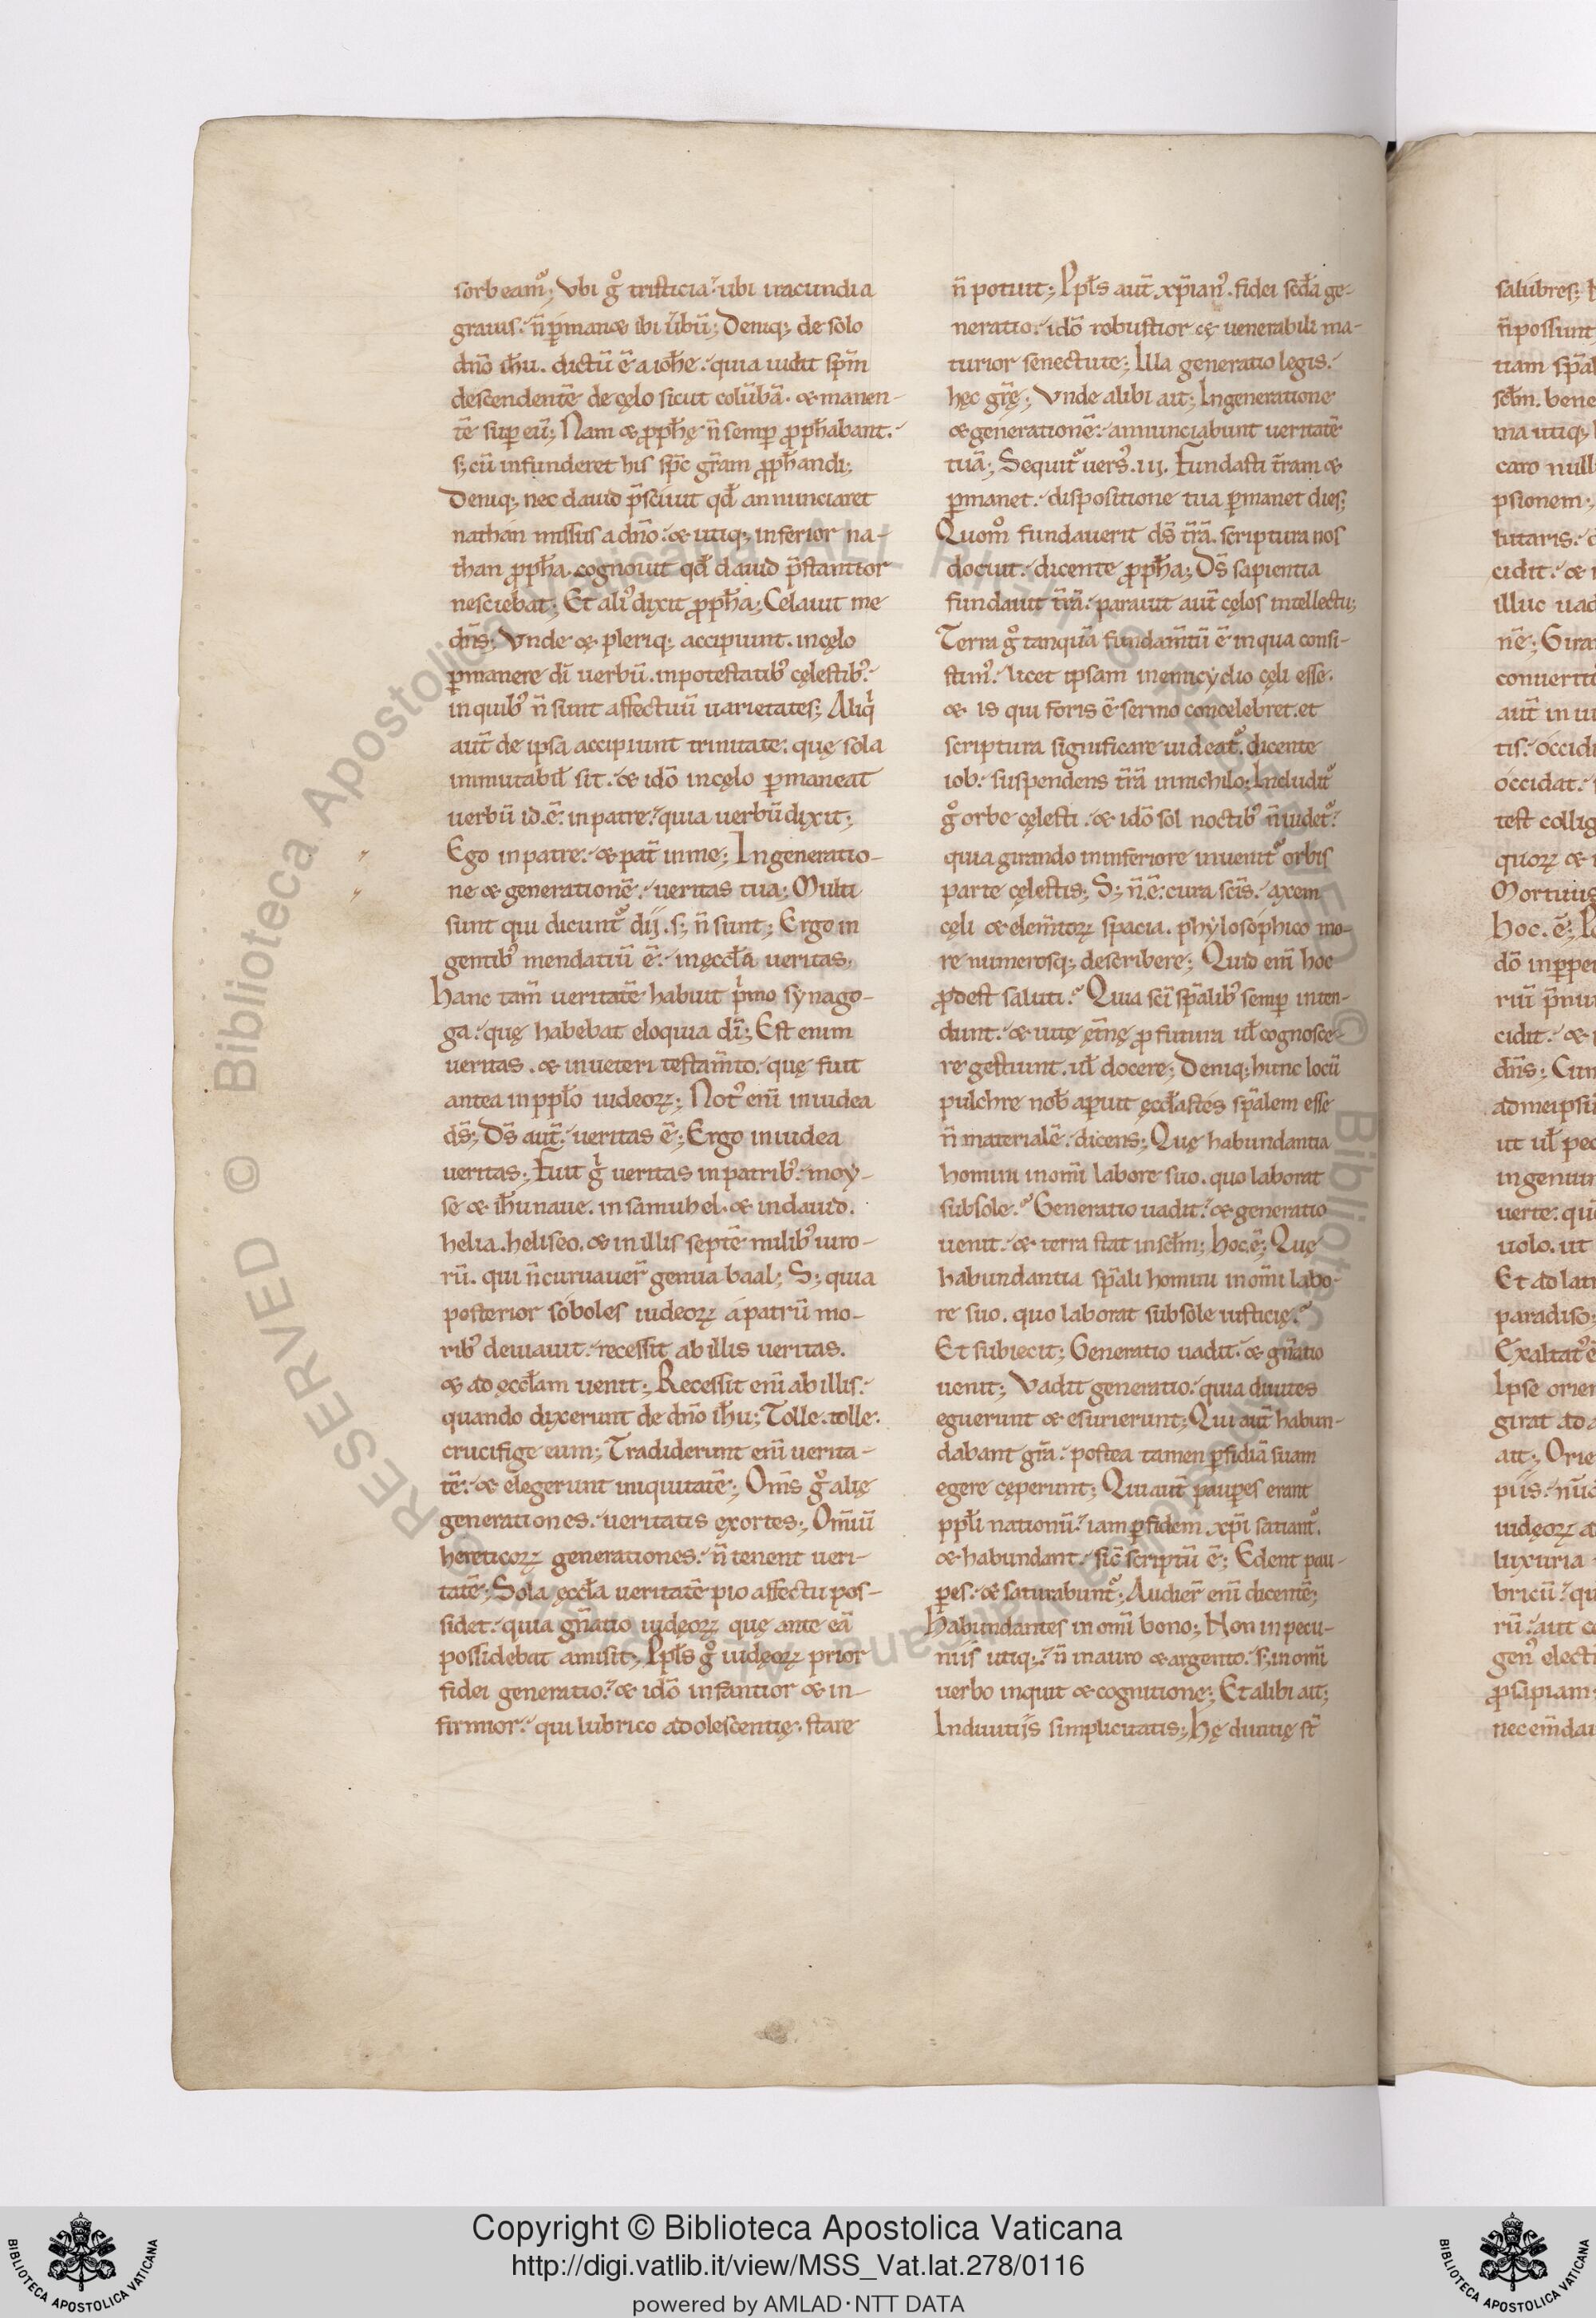 sorbeam᷒; Vbi gͦ tristicia? ubi iracundia
grauis? n̄ ꝑmanet ibi ůbū; Deniq; de solo
dn̄o ih̄u. dictū ē a ioh̄e. quia uidit sp̄m
descendentē de cęlo sicut colūbā. & manen-
tē suꝑ eū; Nam & ꝓph̄ę n̄ semꝑ ꝓph̄abant.
s; cū infunderet his sp̄c gr̄am ꝓph̄andi;
Deniq; nec dauid p̄sciuit qd̄ annunciaret
nathan missus a dn̄o. & utiq; inferior na-
than ꝓph̄a. cognouit qd̄ dauid p̄stantior
nesciebat; Et ali᷒ dixit ꝓph̄a; Celauit me
dn̄s; Vnde & pleriq; accipiunt. in cęlo
ꝑmanere dī uerbū. in potestatib᷒ cęlestib᷒.
in quib᷒ n̄ sunt affectuū uarietates; Aliqͥ
aut̄ de ipsa accipiunt trinitate. quę sola
immutabil̄ sit. & idō in cęlo ꝑmaneat
uerbū id. ē. in patre. quia uerbū dixit;
Ego in patre. & pat̄ in me; In generatio-
ne & generationē. ueritas tua; Multi
sunt qui dicunt᷒ dij. s; n̄ sunt; Ergo in
gentib᷒ mendatiū ē. in ęccl̄a ueritas.
hanc tam̄ ueritatē habuit pͥmo synago-
ga. quę habebat eloquia dī; Est enim
ueritas. & in ueteri testam̄to. quę fuit
antea in ppl̄o iudeoꝝ; Not᷒ eni̅ in iudea
ds̄; Ds̄ aut̄. ueritas ē; Ergo in iudea
ueritas; Fuit gͥ ueritas in patrib᷒. moy-
se & ih̄u naue. in samuhel. & in dauid.
helia. heliseo. & in illis septē milib᷒ uiro-
rū. qui n̄ curuauer̄ genua baal; S; quia
posterior soboles iudeoꝝ a patrū mo-
rib᷒ deuiauit. recessit ab illis ueritas.
& ad ęccl̄am uenit; Recessit enī ab illis.
quando dixerunt de dn̄o ih̄u; Tolle. tolle.
crucifige eum; Tradiderunt enī uerita-
tē. & elegerunt iniquitatē; Om̄s gͦ alię
generationes. ueritatis exortes; Om̄iū
hereticoꝝ generationes. n̄ tenent ueri-
tatē; Sola ęccl̄a ueritatē pio affectu pos-
sidet. quia gn̄atio iudęoꝝ quę ante eā
possidebat amisit; Ppl̄s gͦ iudęoꝝ prior
fidei generatio. & idō infantior & in-
firmior. qui lubrico adolescentię. stare
n̄ potuit; Ppl̄s aut̄ xp̄ian᷒. fidei scd̄a ge-
neratio. idō robustior & uenerabili ma-
turior senectute; Illa generatio legis.
hęc gr̄ę; Vnde alibi ait; In generatione
& generationē. annunciabunt ueritatē
tuā; Sequit᷒ uers᷒. iij. Fundasti t̄ram &
ꝑmanet. dispositione tua ꝑmanet dies;
Quom̊ fundauerit ds̄ t̄rā. scriptura nos
docuit. dicente ꝓph̄a; Ds̄ sapientia
fundauit t̄rā. parauit aut̄ cęlos intellectu;
Terra gͦ tanquā fundam̄tū ē in qua consi-
stim᷒. licet ipsam in emicyclio cęli esse.
& is qui foris ē sermo concelebret. et
scriptura significare uideat᷒. dicente
iob. suspendens t̄rā in nichilo; Includit᷒
gͦ orbe cęlesti. & idō sol noctib᷒ n̄ uidet᷒.
quia girando in inferiore inuenit᷒ orbis
parte cęlestis; S; n̄. ē. cura sc̄is. axem
cęli & elem̄toꝝ spacia. phylosophico mo-
re numerosq; describere; Quid enī hoc
ꝓdest saluti? Quia sc̄i sp̄alib᷒ semꝑ inten-
dunt. & uitę ęt̄nę ꝓfutura ul̄ cognosce-
re gestiunt. ul̄ docere; Deniq; hunc locū
pulchre nob̄ aꝑuit ęccl̄astes sp̄alem esse
n̄ materialē. dicens; Quę habundantia
homini in om̄i labore suo. quo laborat
sub sole? Generatio uadit. & generatio
uenit. & terra stat in scl̄m; hoc. ē; Quę
habundantia sp̄ali homini in om̄i labo-
re suo. quo laborat sub sole iusticię?
Et subiecit; Generatio uadit. & gn̄atio
uenit; Vadit generatio. quia diuites
eguerunt & esurierunt; Qui aut̄ habun-
dabant gr̄a. postea tamen ꝑfidiā suam
egere cęperunt; Qui aut̄ pauꝑes erant
ppl̄i nationū. iam ꝑ fidem xp̄i satiant᷒.
& habundant. sic̄ scriptū ē; Edent pau-
ꝑes. & saturabunt᷒; Audier̄ enī dicentē;
habundantes in om̄i bono; Non in pecu-
niis utiq;. n̄ in auro & argento. s; in om̄i
uerbo inquit & cognitione; Et alibi ait;
In diuitijs simplicitatis; Hę diuitię st̄
Copyright © Biblioteca Apostolica Vaticana
http://digi.vatlib.it/view/MSS_Vat.lat.278/0116
powered by AMLAD·NTT DATA